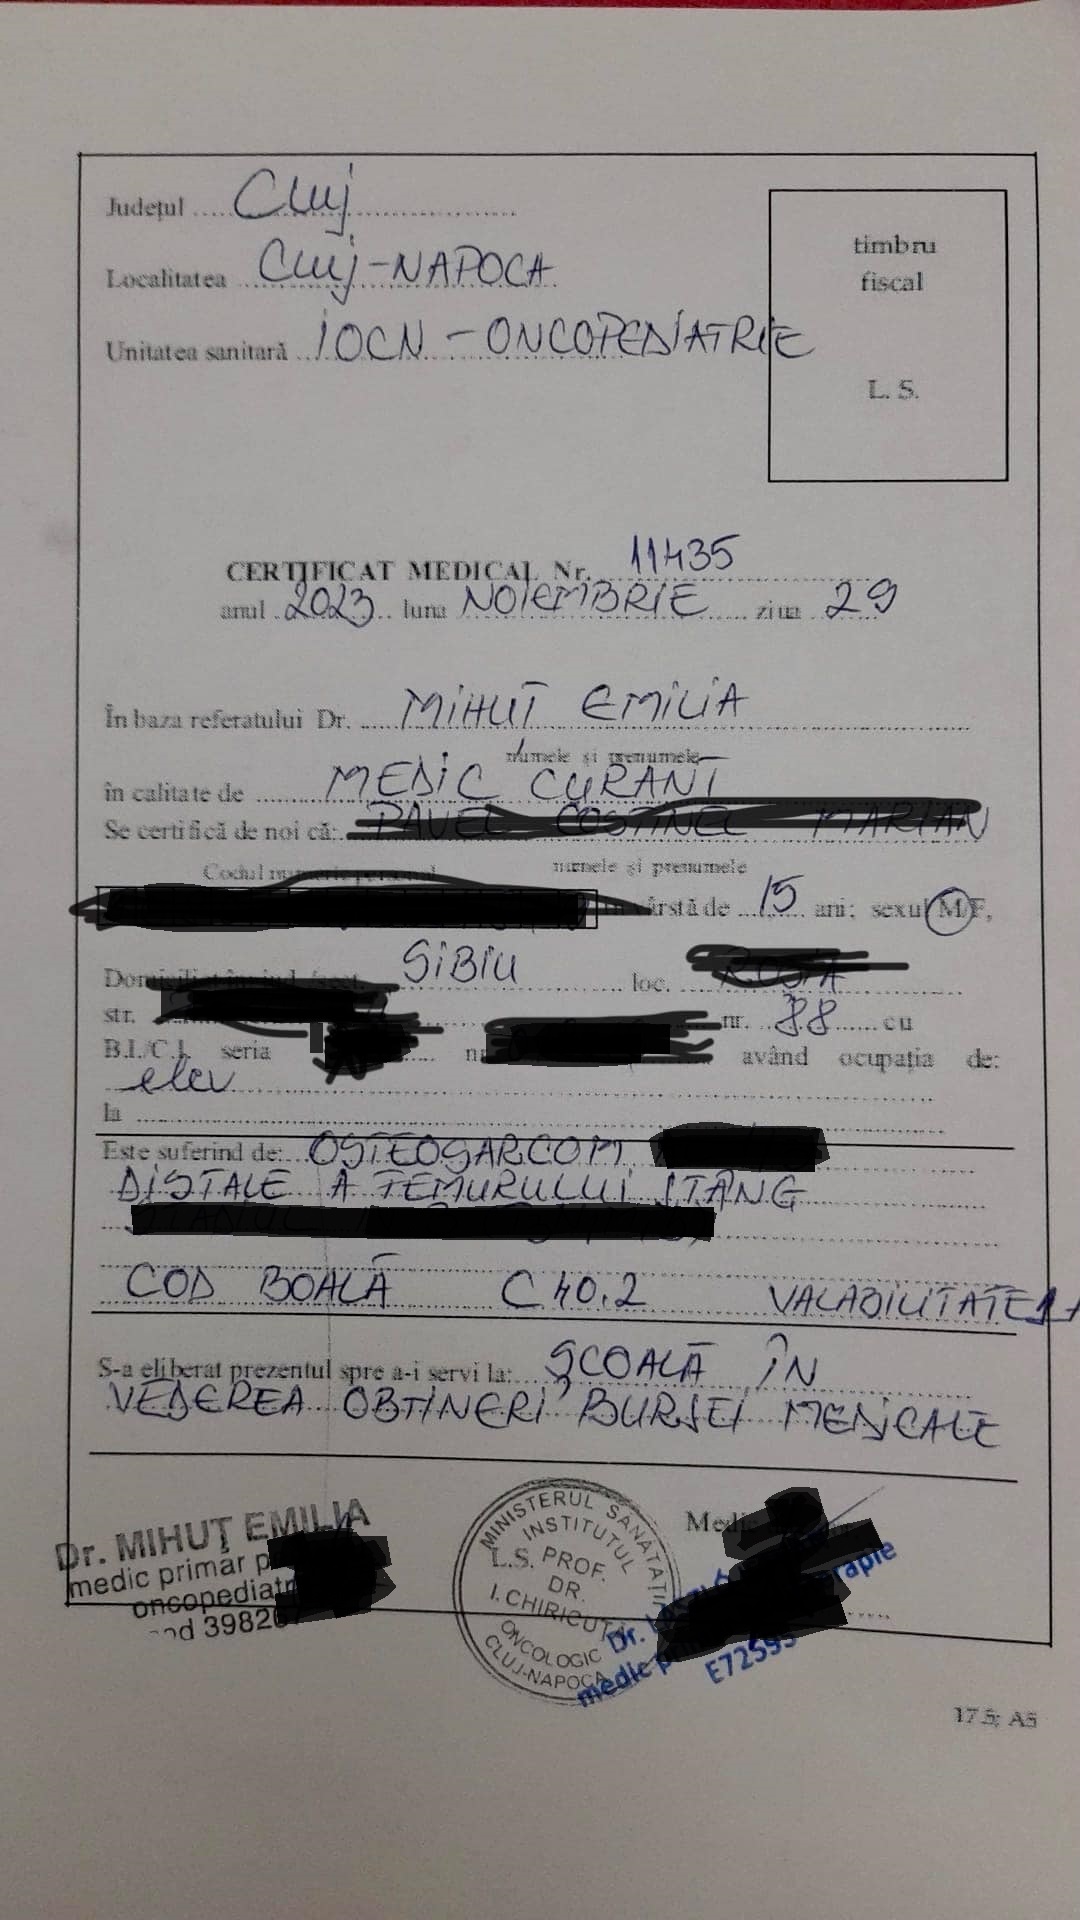 Județul Cluj
timbru
fiscal
Localitatea Cluj-NAPOCA
Unitatea sanitară IOCN - ONCOPEDIATRIE
L. S.
CERTIFICAT MEDICAL Nr. 11435
anul 2023 luna NOIEMBRIE ziua 29
În baza referatului Dr. MIHUȚ EMILIA
numele și prenumele
în calitate de MEDIC CURANT
Se certifică de noi că:
Codul numeric personal numele și prenumele
vârstă de 15 ani; sexul M/F,
SIBIU loc.
str. nr. 88 cu
B.I./C.I. seria având ocupația de:
elev
la
Este suferind de: OSTEOSARCOM
DISTALE A FEMURULUI STÂNG
COD BOALĂ C40.2 VALABILITATE
S-a eliberat prezentul spre a-i servi la: ȘCOALĂ ÎN
VEDEREA OBȚINERI BURSEI MEDICALE
Dr. MIHUȚ EMILIA
medic primar
MINISTERUL SANATATII
INSTITUTUL
L.S. PROF.
DR.
I. CHIRICUTA
ONCOLOGIC
CLUJ-NAPOCA
Dr.
medic
17.5; A5